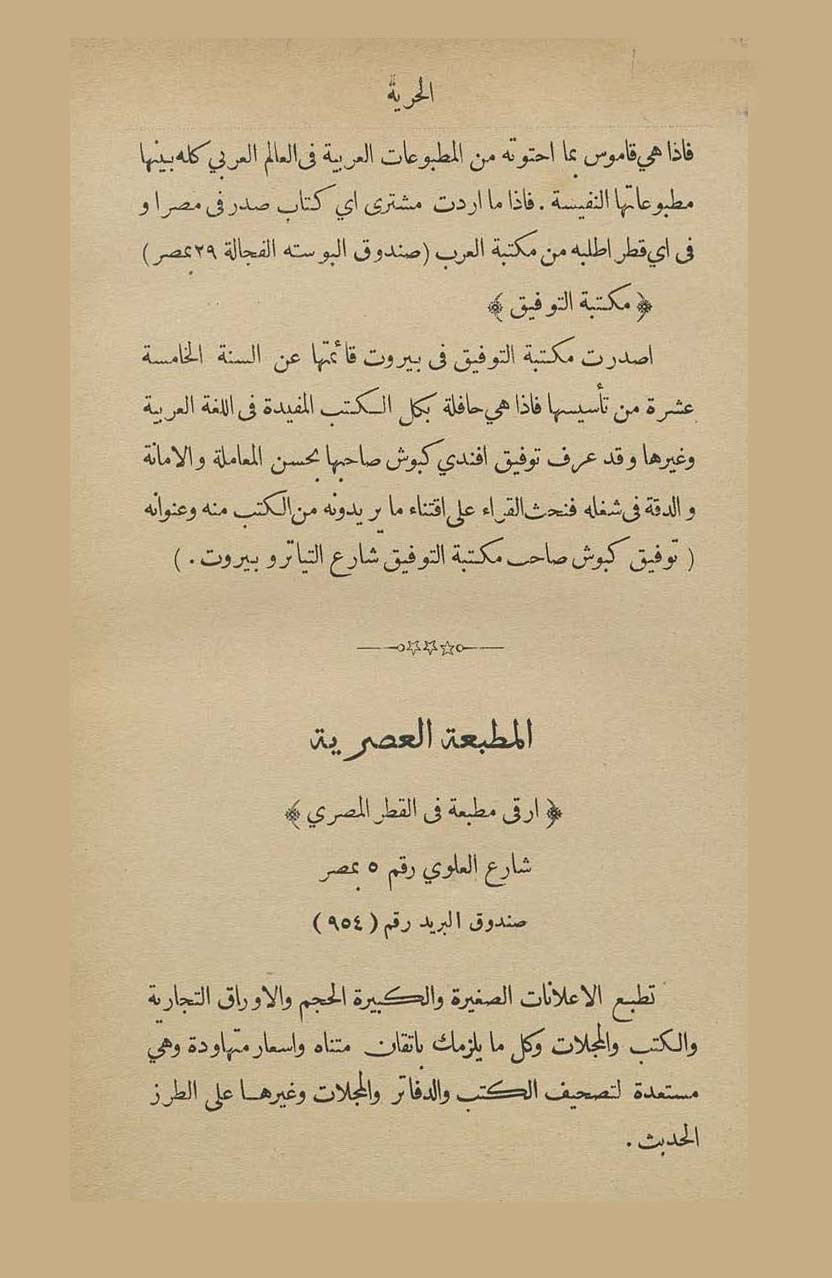 الحرية
فاذا هي قاموس بما احتوته من المطبوعات العربية فى العالم العربي كله بينها
مطبوعاتها النفيسة . فاذا ما اردت مشترى اي كتاب صدر فى مصر او
فى اي قطر اطلبه من مكتبة العرب ( صندوق البوسته الفجالة ٢٩ بمصر )
﴿ مكتبة التوفيق ﴾
اصدرت مكتبة التوفيق فى بيروت قائمتها عن السنة الخامسة
عشرة من تأسيسها فاذا هي حافلة بكل الكتب المفيدة فى اللغة العربية
وغيرها وقد عرف توفيق افندي كبوش صاحبها بحسن المعاملة والامانة
والدقة فى شغله فنحث القراء على اقتناء ما يريدونه من الكتب منه وعنوانه
( توفيق كبوش صاحب مكتبة التوفيق شارع التياترو بيروت . )
المطبعة العصرية
﴿ ارقى مطبعة فى القطر المصري ﴾
شارع العلوي رقم ٥ بمصر
صندوق البريد رقم ( ٩٥٤ )
تطبع الاعلانات الصغيرة والكبيرة الحجم والاوراق التجارية
والكتب والمجلات وكل ما يلزمك باتقان متناه واسعار متهاودة وهي
مستعدة لتصحيف الكتب والدفاتر والمجلات وغيرها على الطرز
الحديث .